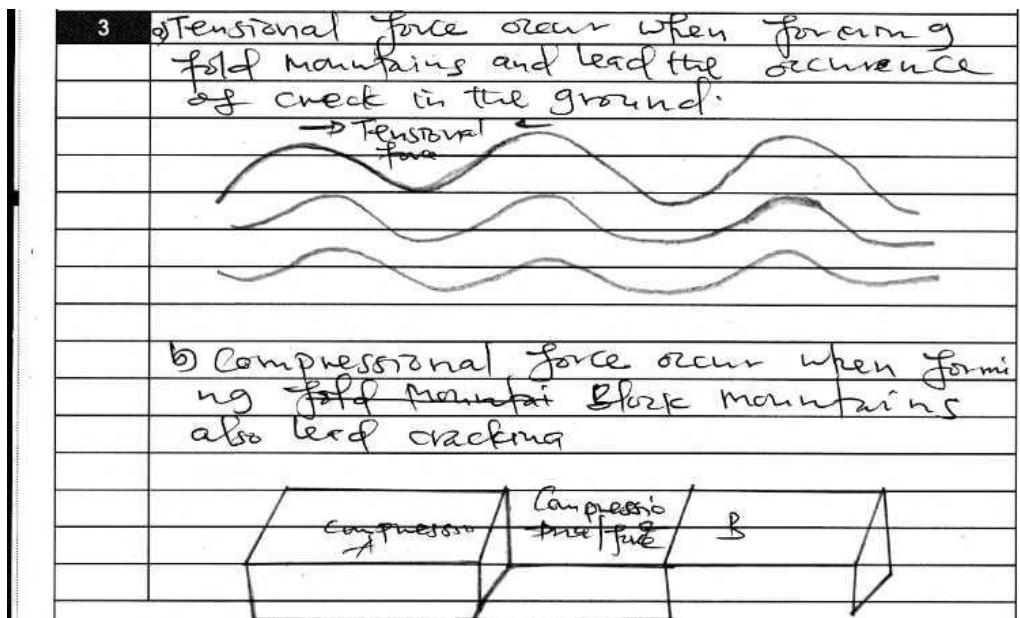 3
a) Tensional force occur when forcing
fold mountains and lead the occurence
of creck in the ground.
Tensional
force
b) Compressional force occur when formi
ng fold mountai Block mountains
also lead cracking
Compressio
force
Compressio
A
B